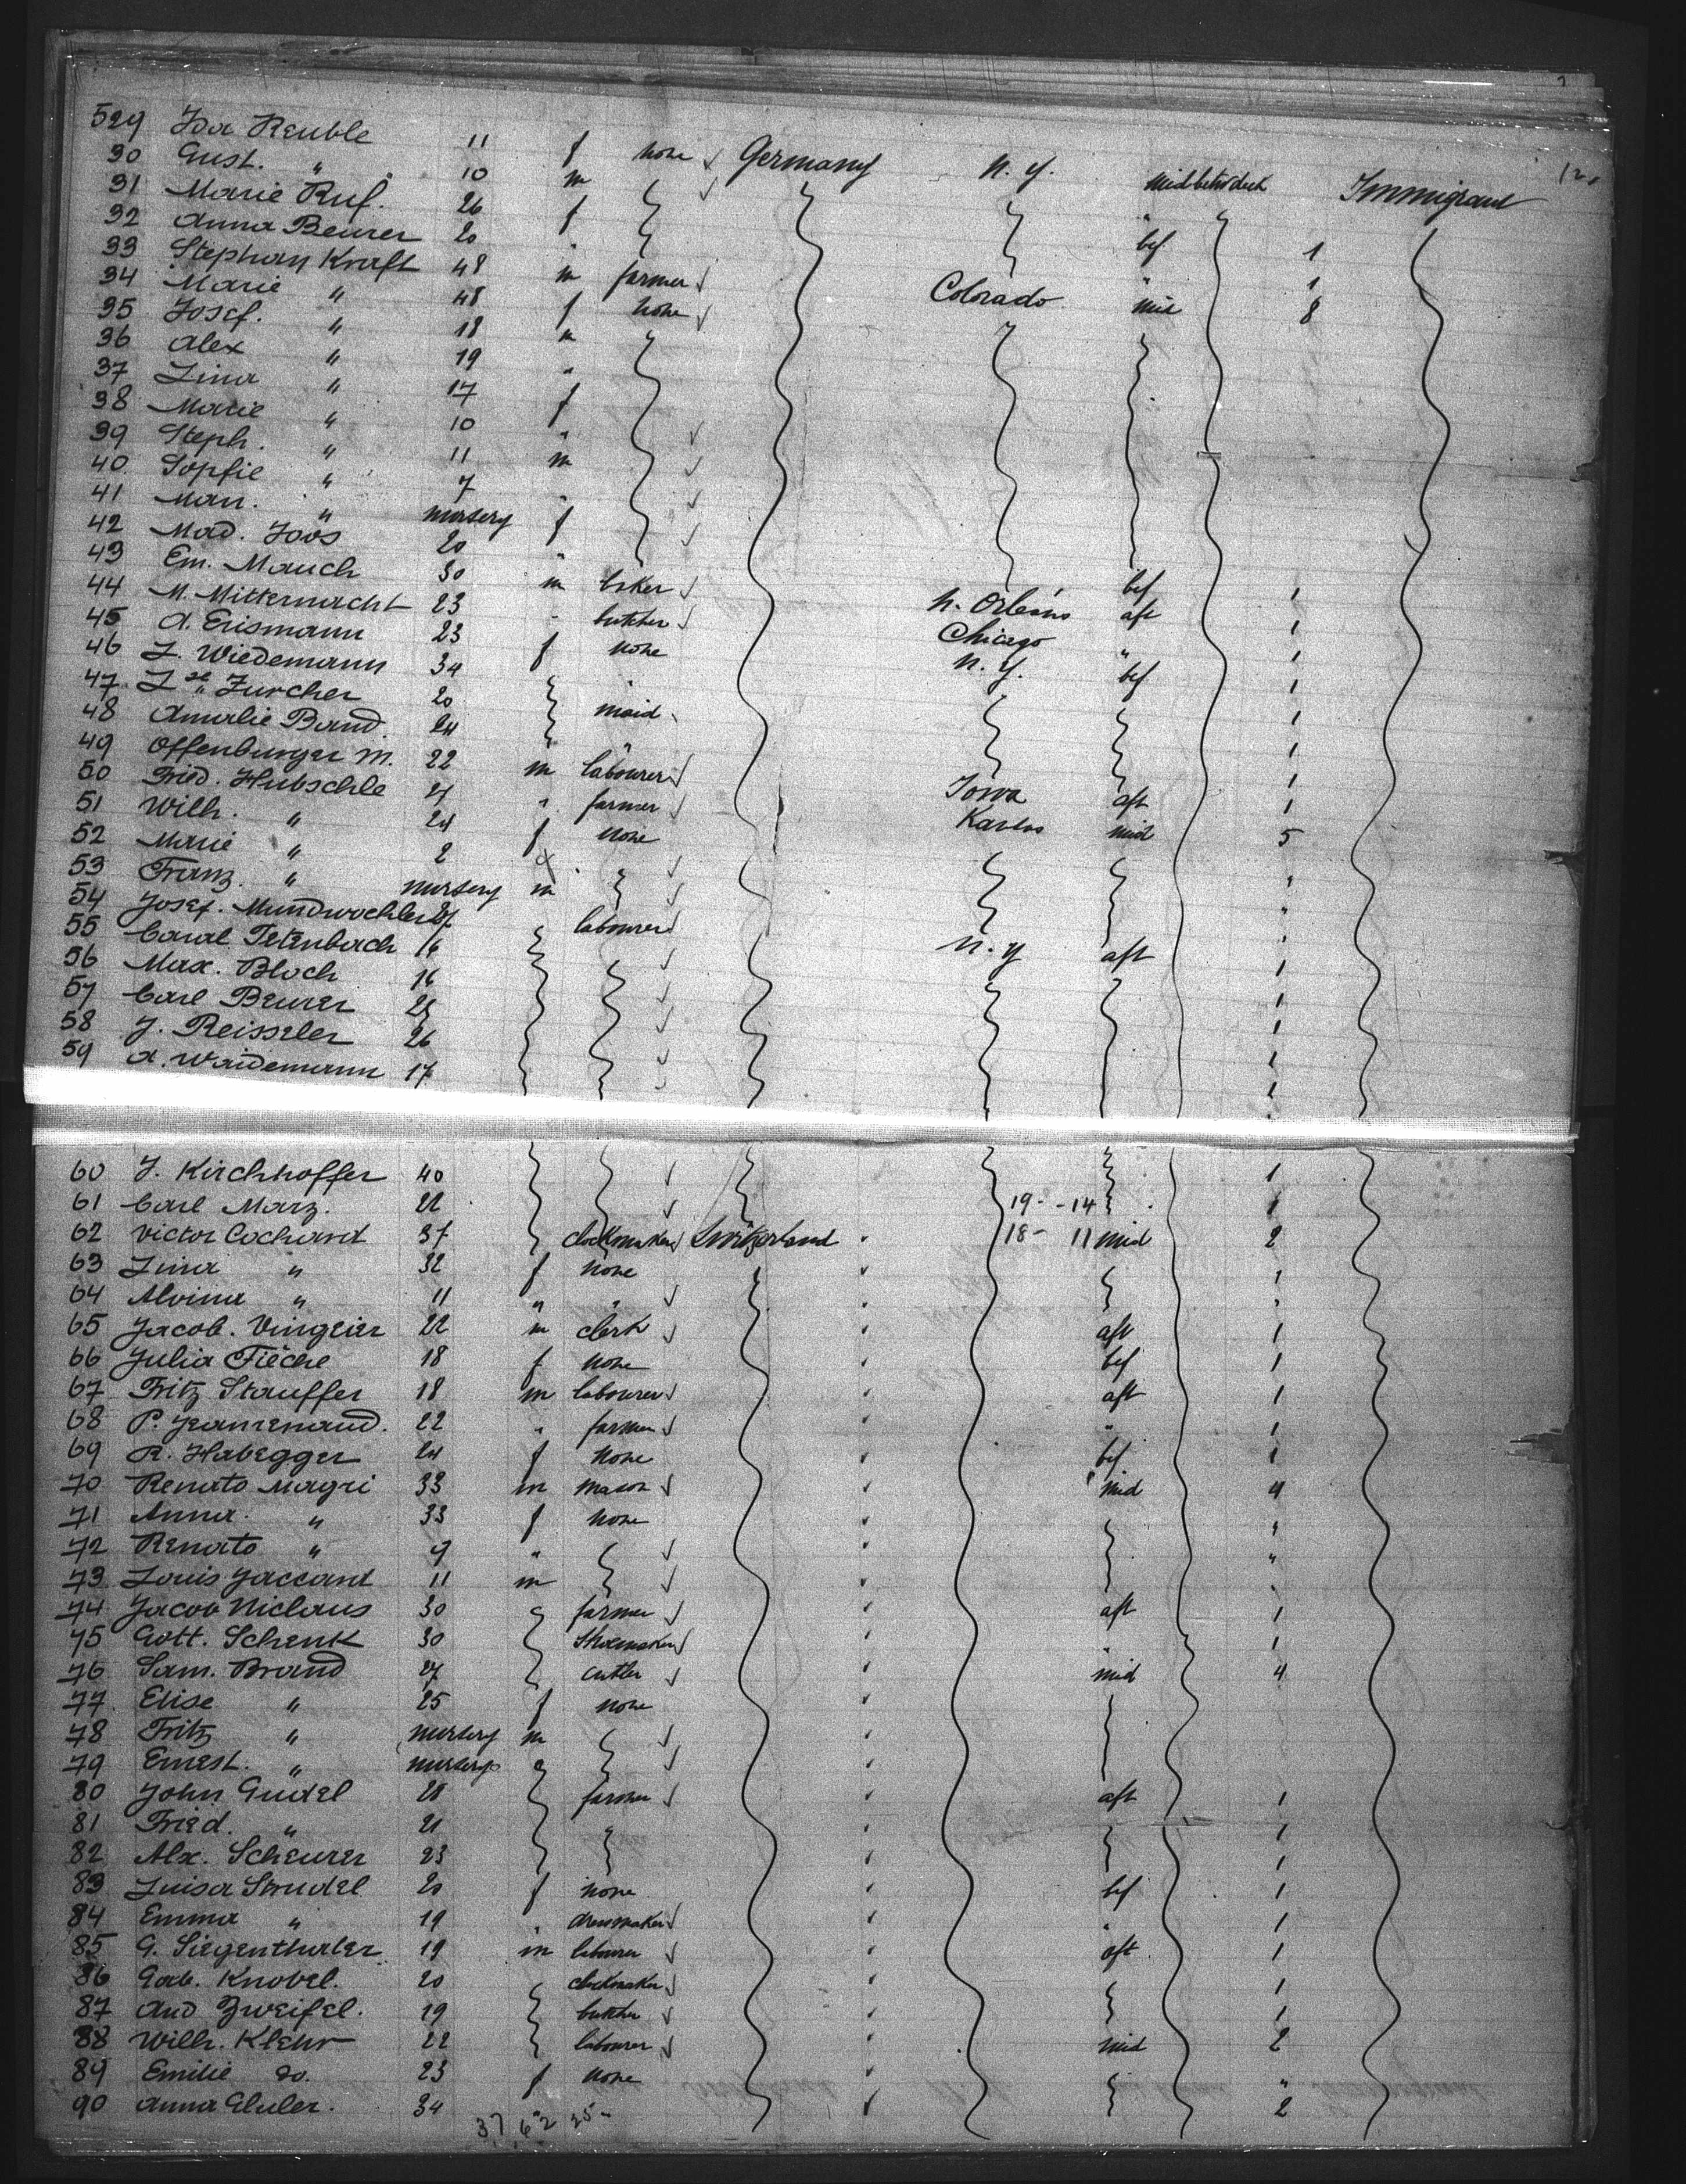 529 Ida Reuble 11 f none Germany N.Y. midbetwdeck Immigrant 12
30 Gust. " 10 m
31 Marie Ruf. 26 f " bef 1
32 Anna Beurer 20 " " 1
33 Stephan Kraft 48 m farmer Colorado mid 8
34 Marie " 48 f none
35 Josef. " 18 m
36 Alex " 19 "
37 Lina " 17 f
38 Marie " 10 "
39 Steph. " 11 m
40 Sopfie " 7 "
41 Man. " nursery f
42 Mad. Joos 20 " bef 1
43 Em. Mauch 30 m baker N. Orleans aft 1
44 M. Mitternacht 23 " butcher Chicago " 1
45 A. Erismann 23 f none N.Y. bef 1
46 L. Wiedemann 34 " 1
47 L se " Zurcher 20 maid 1
48 Amalie Band. 24 " 1
49 Offenburger M. 22 m labourer Iowa aft 1
50 Fried. Hubschle 24 " farmer Kansas mid 5
51 Wilh. " 24 f none "
52 Marie " 2 " "
53 Franz. " nursery m "
54 Josef. Mundwochler 27 labourer N.Y aft 1
55 Caral Tetenbach 16 1
56 Max. Bloch 16 1
57 Carl Beurer 28 1
58 J. Reisseler 26 1
59 A. Waidemann 17 1
60 J. Kirchhoffer 40 1
61 Carl Marz. 22 19 - - 14 1
62 Victor Cochard 37 clockmaker Switzerland 18 - 11 mid 2
63 Lina " 32 f none "
64 Alvina " 11 " " "
65 Jacob. Vingeier 22 m clerk aft 1
66 Julia Fièche 18 f none bef 1
67 Fritz Stauffer 18 m labourer aft 1
68 P. Jeanrenaud. 22 " farmer " 1
69 R. Habegger 24 f none bef 1
70 Renato Magri 33 m mason mid 4
71 Anna. " 33 f none "
72 Renato " 9 " "
73 Louis Jaccard 11 m "
74 Jacob Niclaus 30 farmer aft 1
75 Gott. Schenk 30 shoemaker " 1
76 Sam. Brand 27 cutler mid 4
77 Elise " 25 f none
78 Fritz " nursery m
79 Ernest. " nursery
80 John Gudel 28 farmer aft 1
81 Fried. " 21 " 1
82 Alx. Scheurer 23 1
83 Luisa Strudel 20 f none bef 1
84 Emma " 19 " dressmaker " 1
85 G. Siegenthaler 19 m labourer aft 1
86 Gab. Knobel. 20 clockmaker 1
87 And Zweifel. 19 butcher 1
88 Wilh. Klehr 22 labourer mid 2
89 Emilie do. 23 f none "
90 Anna Eluler. 34 2
37 6 2 25 -